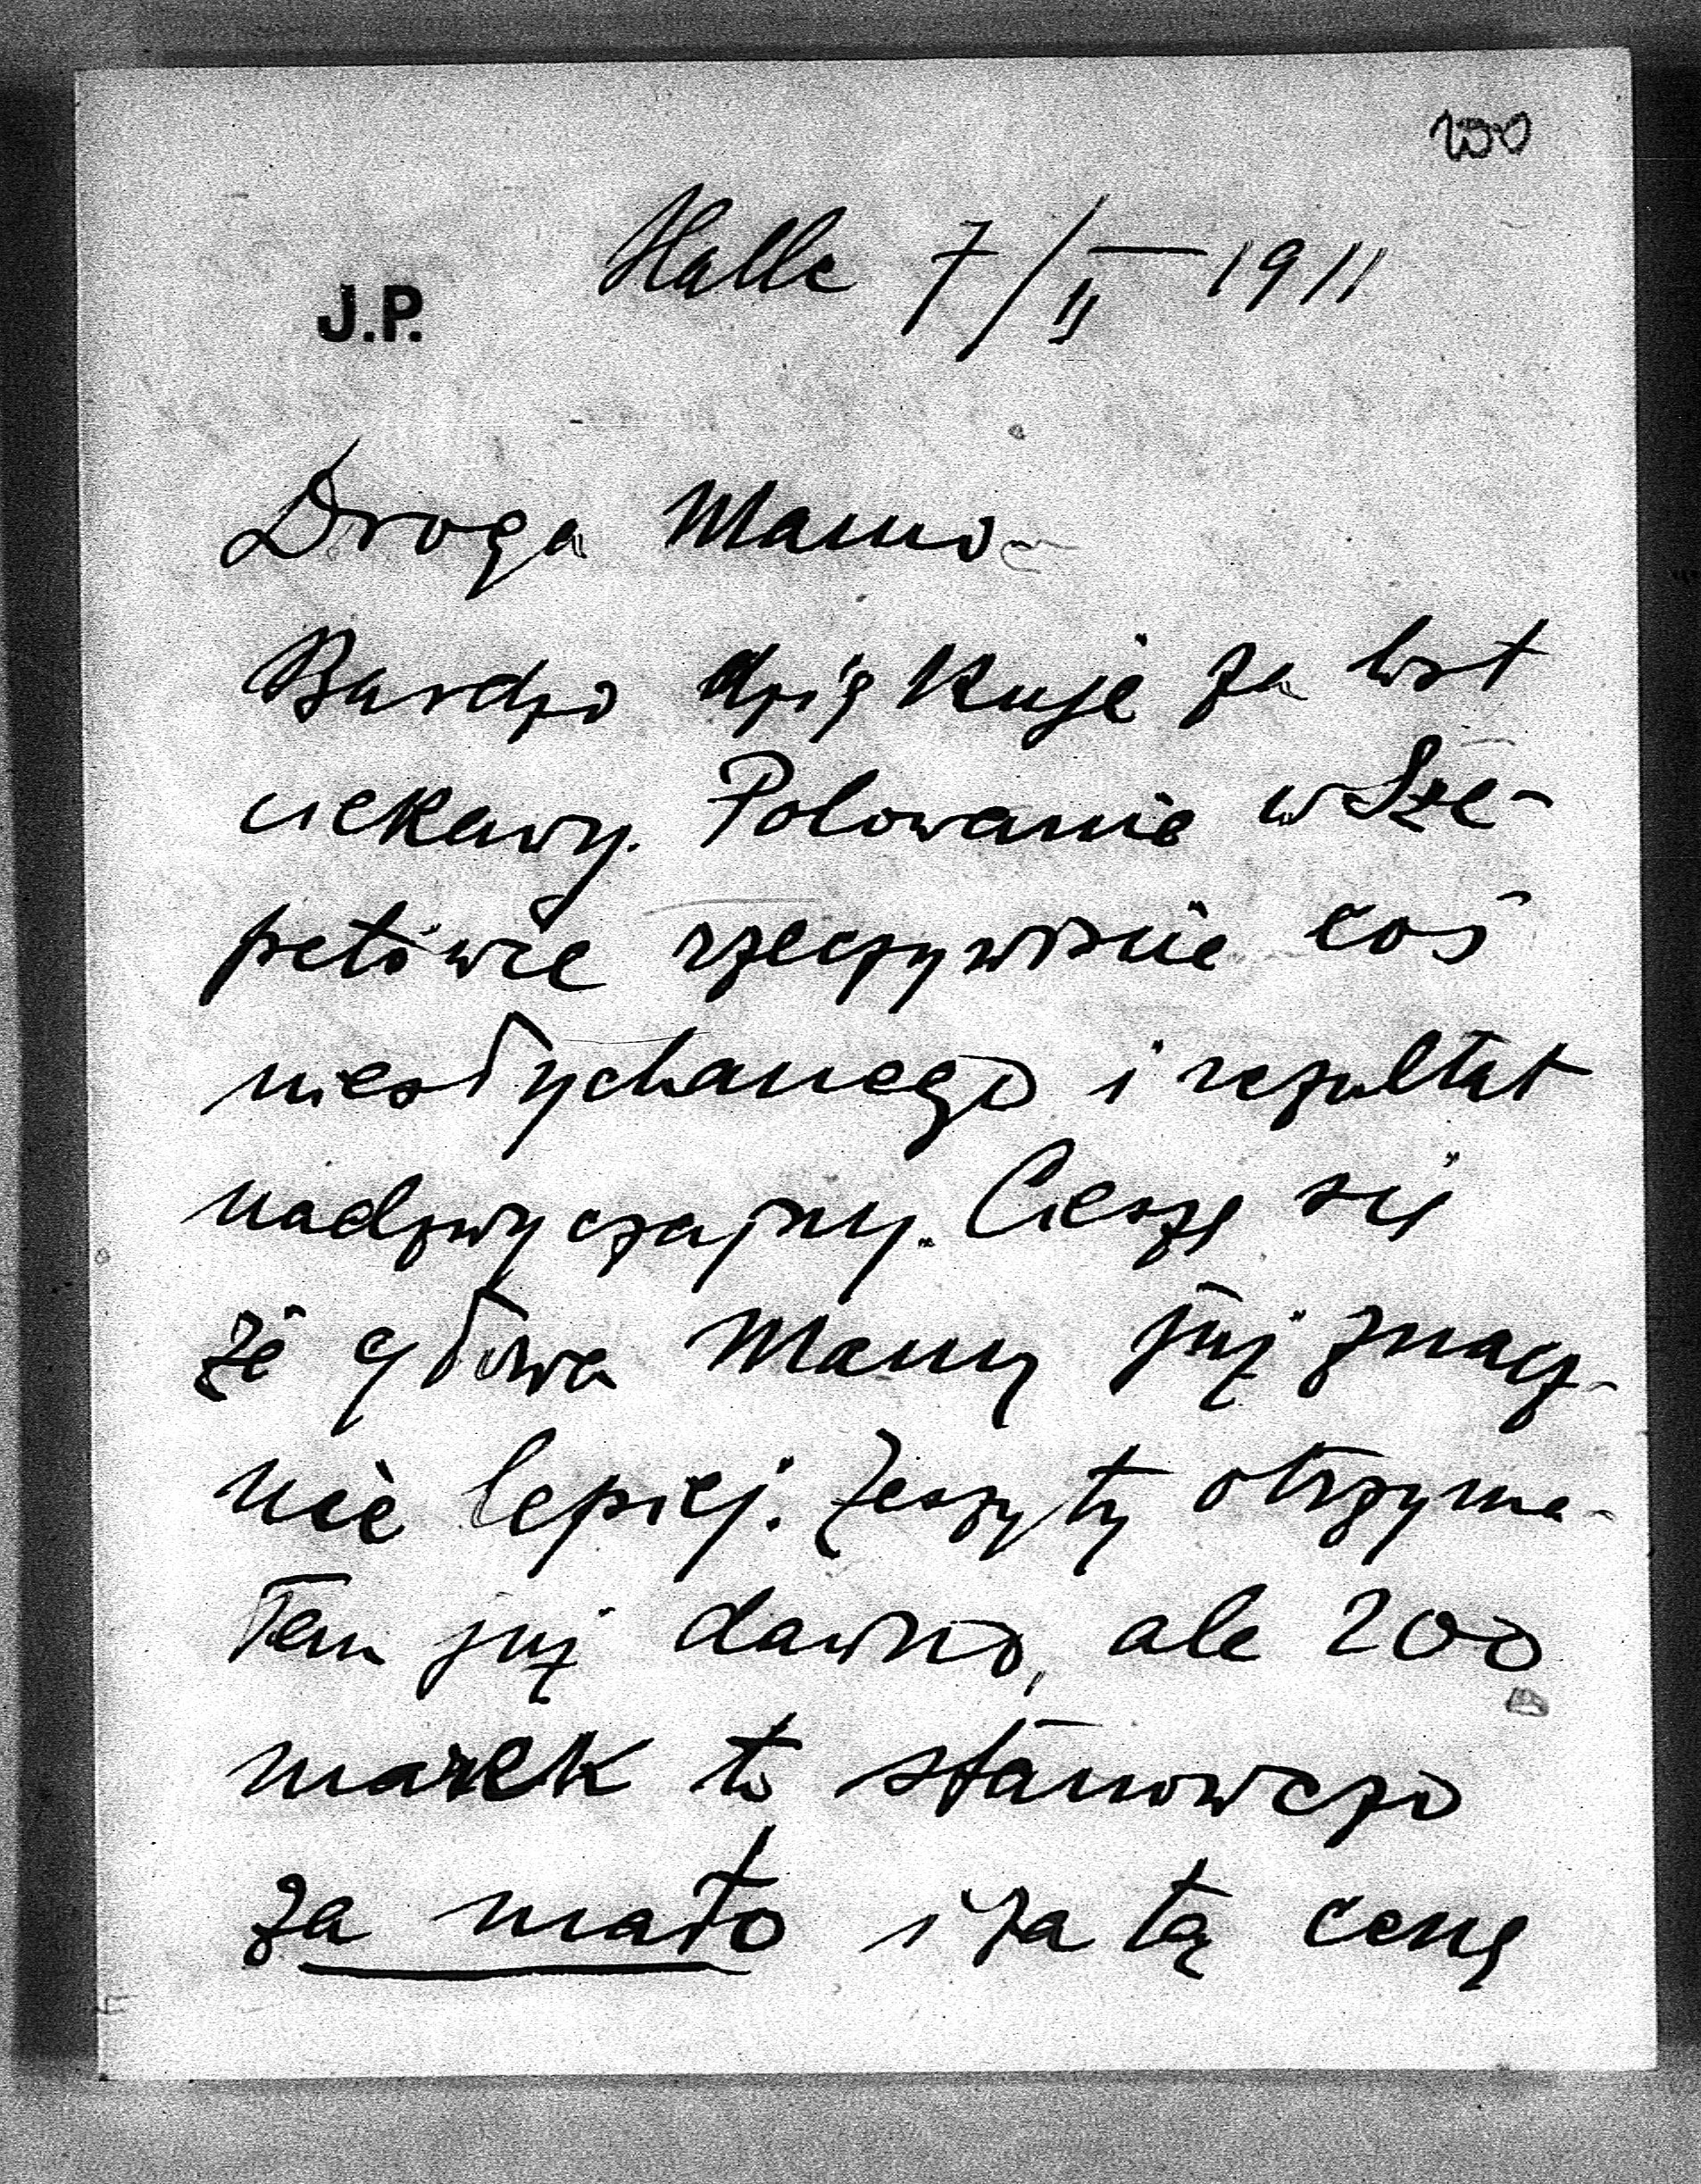 200
Halle 7/II 1911
J.P.
Droga Mamo
Bardzo dziękuję za list
ciekawy. Polowanie w Sze-
petówce rzeczywiście coś
niesłychanego i rezultat
nadzwyczajny. Cieszę się
że głowa Mamy już znacz-
nie lepiej. Zeszyty otrzyma-
łem już dawno, ale 200
marek to stanowczo
za mało i za tą cenę